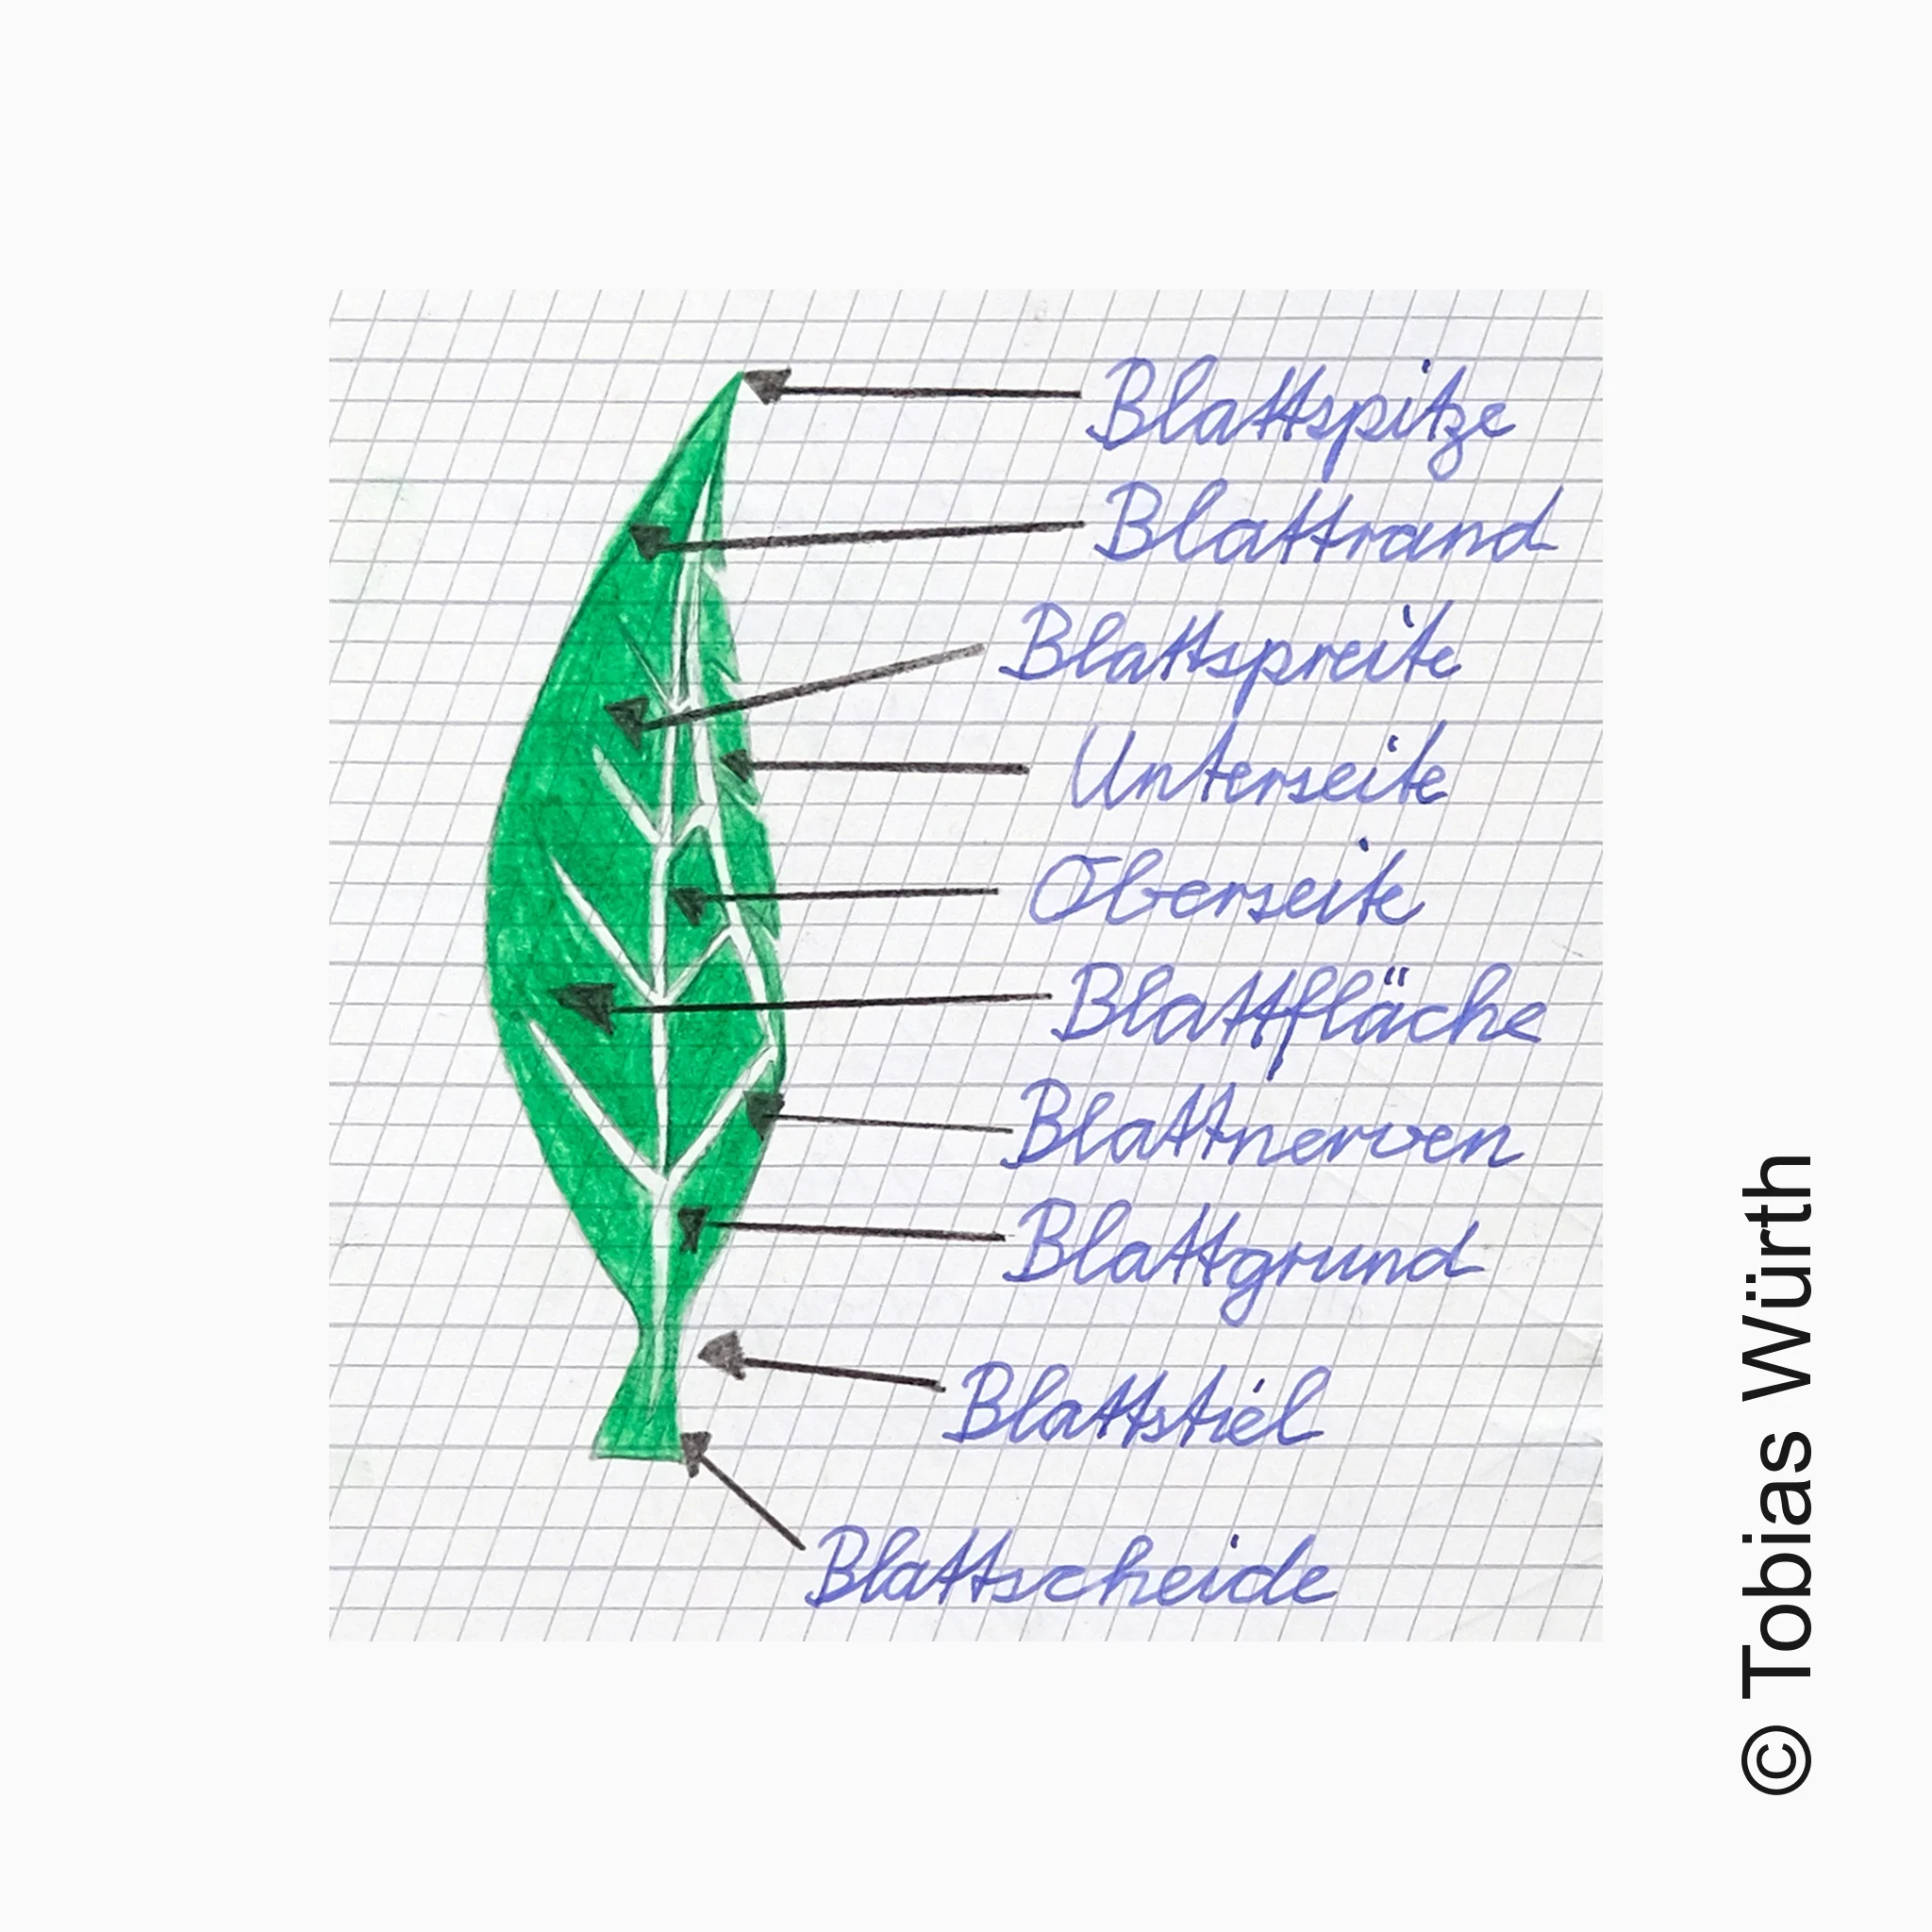 Blattspitze
Blattrand
Blattspreite
Unterseite
Oberseite
Blattfläche
Blattnerven
Blattgrund
Blattstiel
Blattscheide
© Tobias Würth